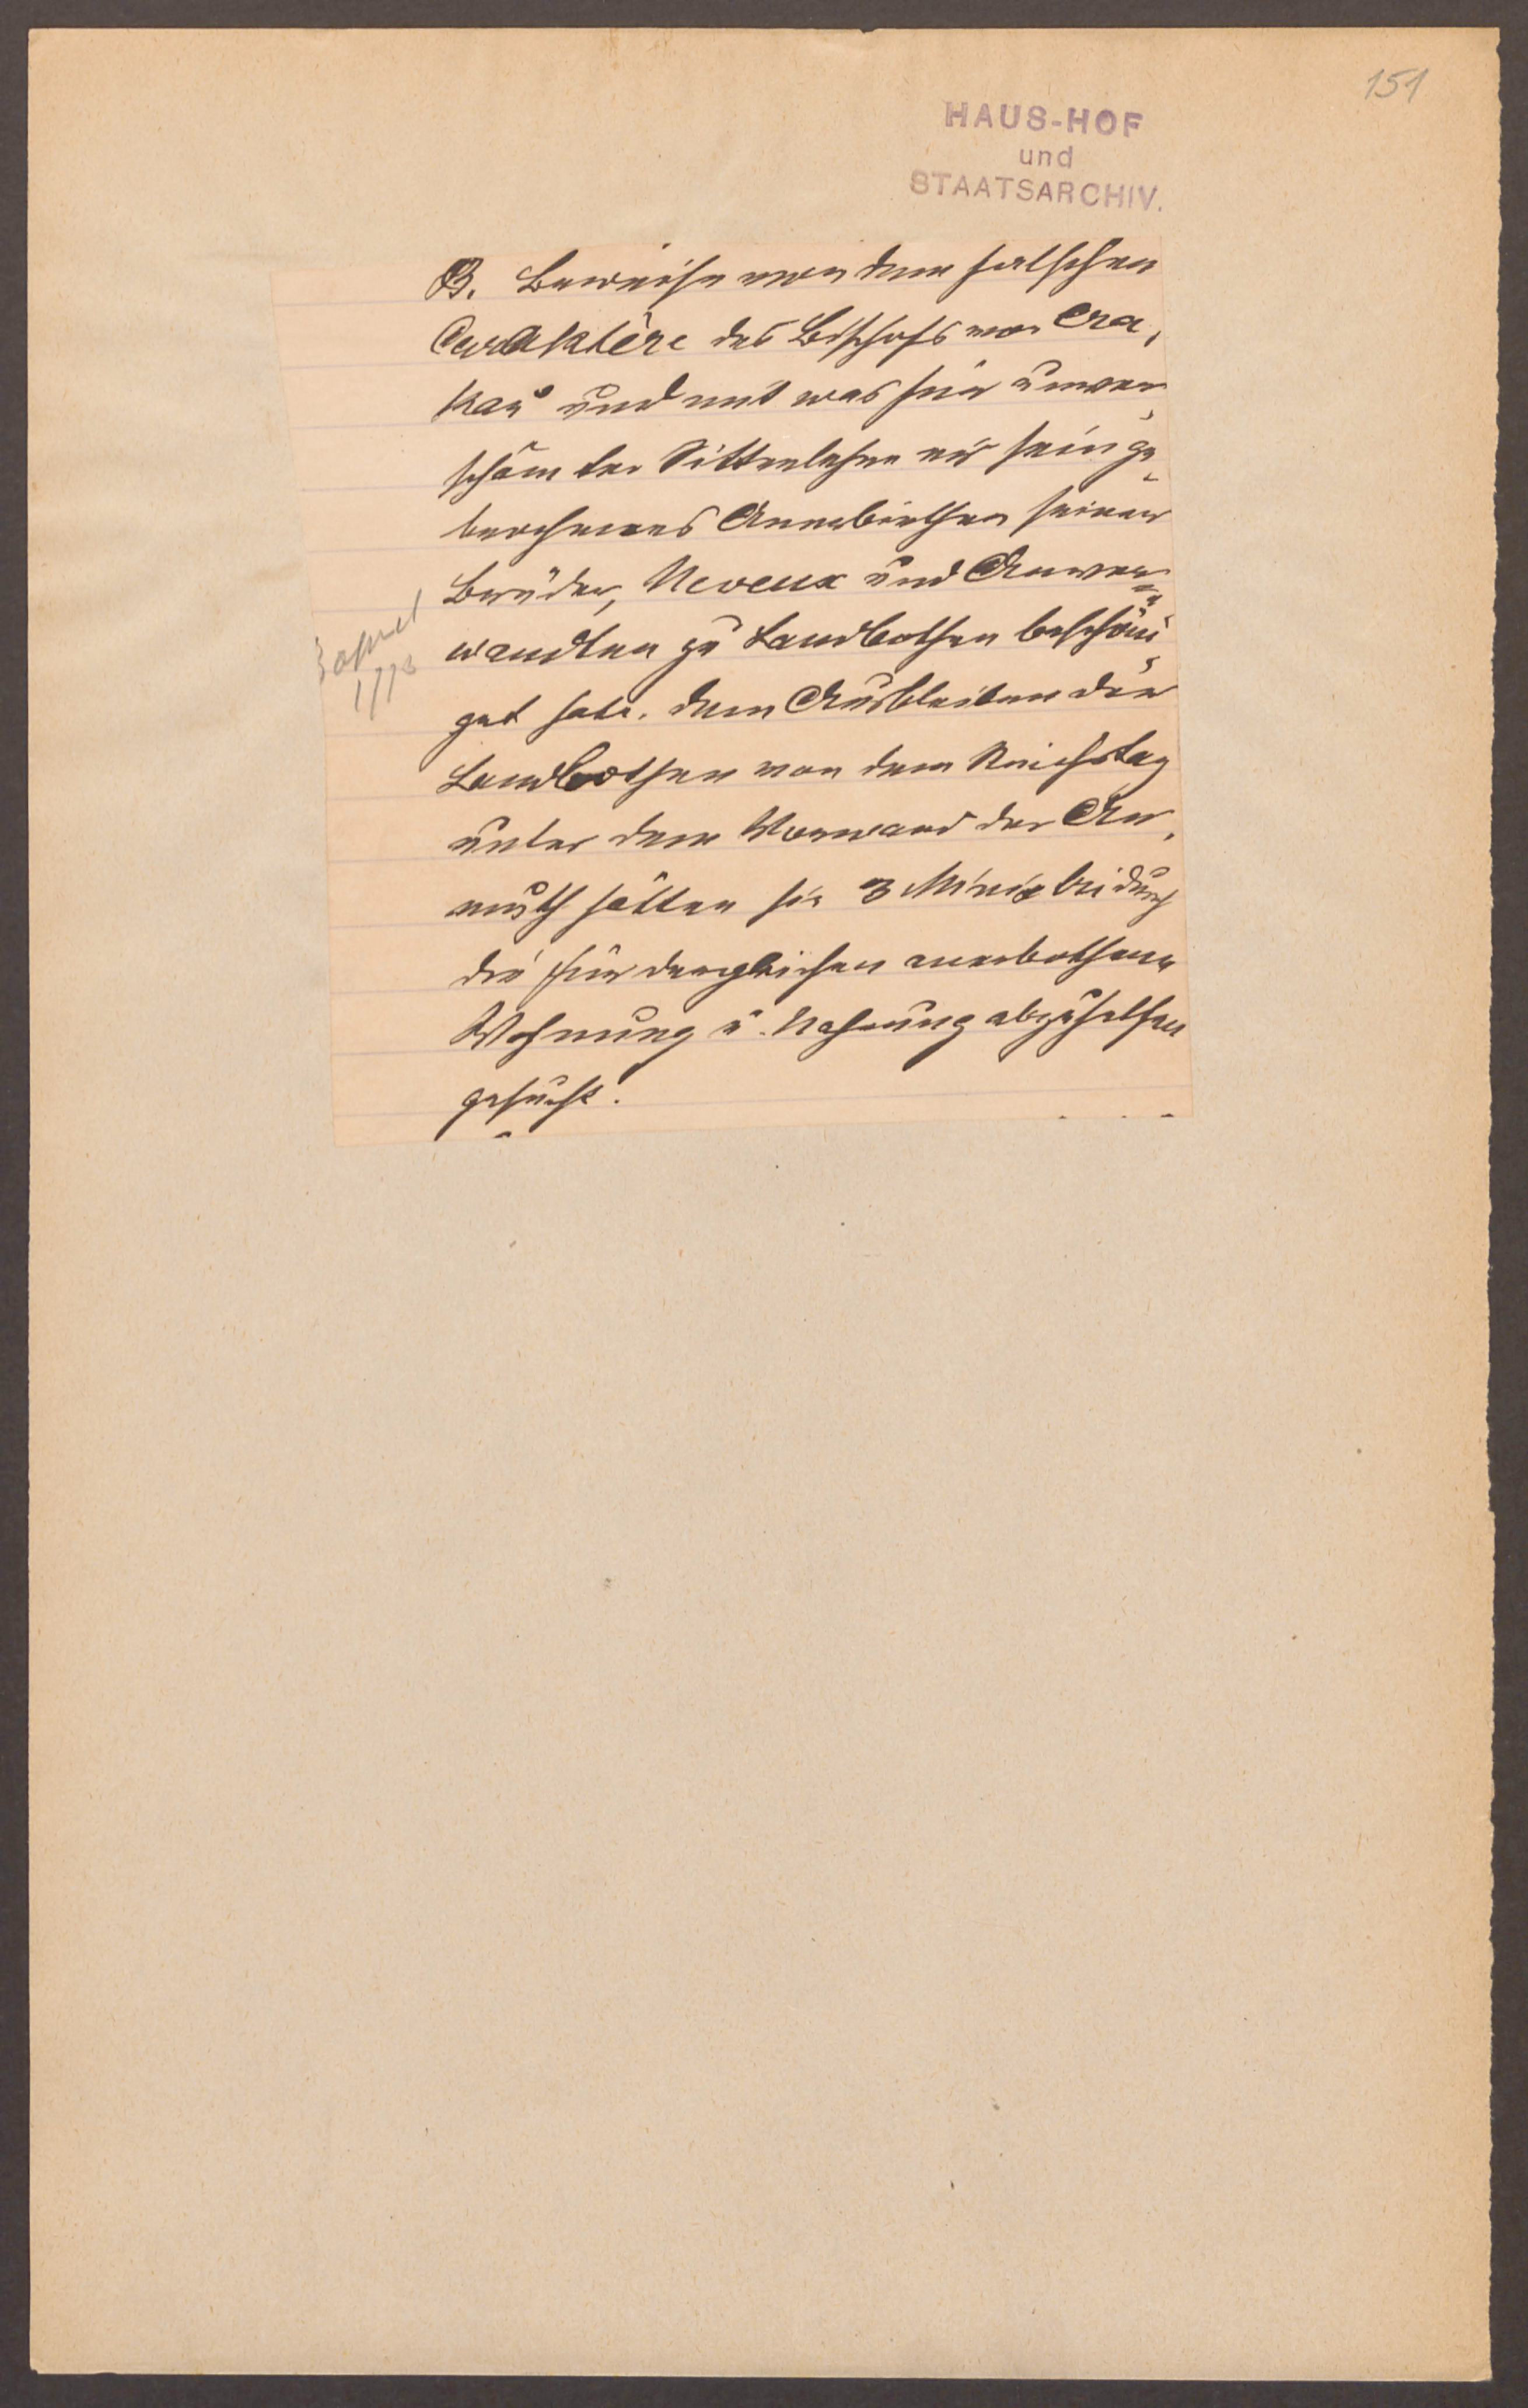 151
HAUS-HOF
und
STAATSARCHIV.
B. Beweise von dem falschen
Caraktère des Bischofs von Cra,
kau und mit was für unver
schämter Sittenlehre er sein ge
brochenes Anerbiethen seiner
Brüder, Neveux und Anver=
wandten zu Landbothen beschöni
get habe. dem Ausbleiben der
Landbothen von dem Reichstag
unter dem Vorwand der Ar,
muth hätten sie 3 Ministri durch
die für dergleichen anerbothene
Wohnung u. Nahrung abzuhelfen
gesucht.
3 April
1773